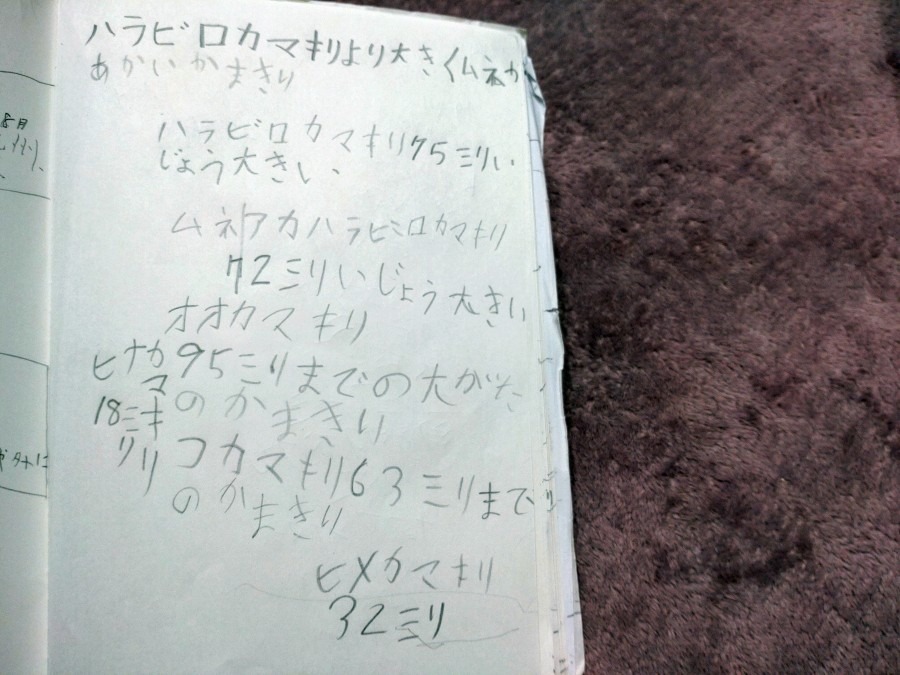 ハラビロカマキリより大きくムネが
あかいかまきり
ハラビロカマキリ75ミリい
じょう大きい
ムネアカハラビロカマキリ
72ミリいじょう大きい
オオカマキリ
95ミリまでの大がた
のかまきり
ヒナカマキリ
18ミリ
コカマキリ63ミリまで
のかまきり
ヒメカマキリ
32ミリ
8月